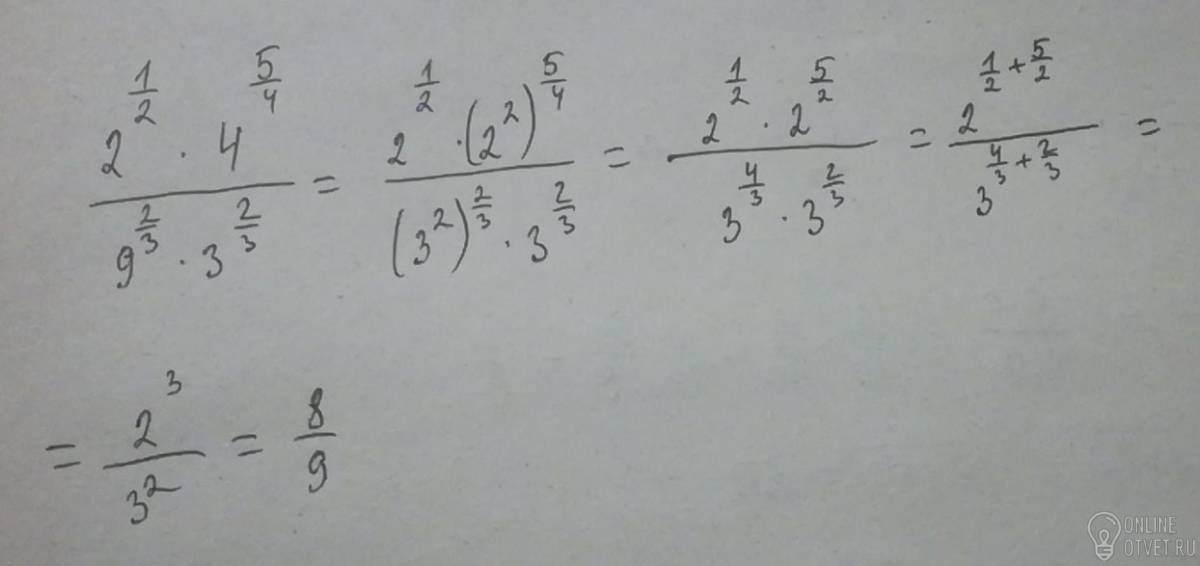 \frac{2^{\frac{1}{2}} \cdot 4^{\frac{5}{4}}}{9^{\frac{2}{3}} \cdot 3^{\frac{2}{3}}} = \frac{2^{\frac{1}{2}} \cdot (2^2)^{\frac{5}{4}}}{(3^2)^{\frac{2}{3}} \cdot 3^{\frac{2}{3}}} = \frac{2^{\frac{1}{2}} \cdot 2^{\frac{5}{2}}}{3^{\frac{4}{3}} \cdot 3^{\frac{2}{3}}} = \frac{2^{\frac{1}{2} + \frac{5}{2}}}{3^{\frac{4}{3} + \frac{2}{3}}} =
= \frac{2^3}{3^2} = \frac{8}{9}
ONLINE
OTVET.RU